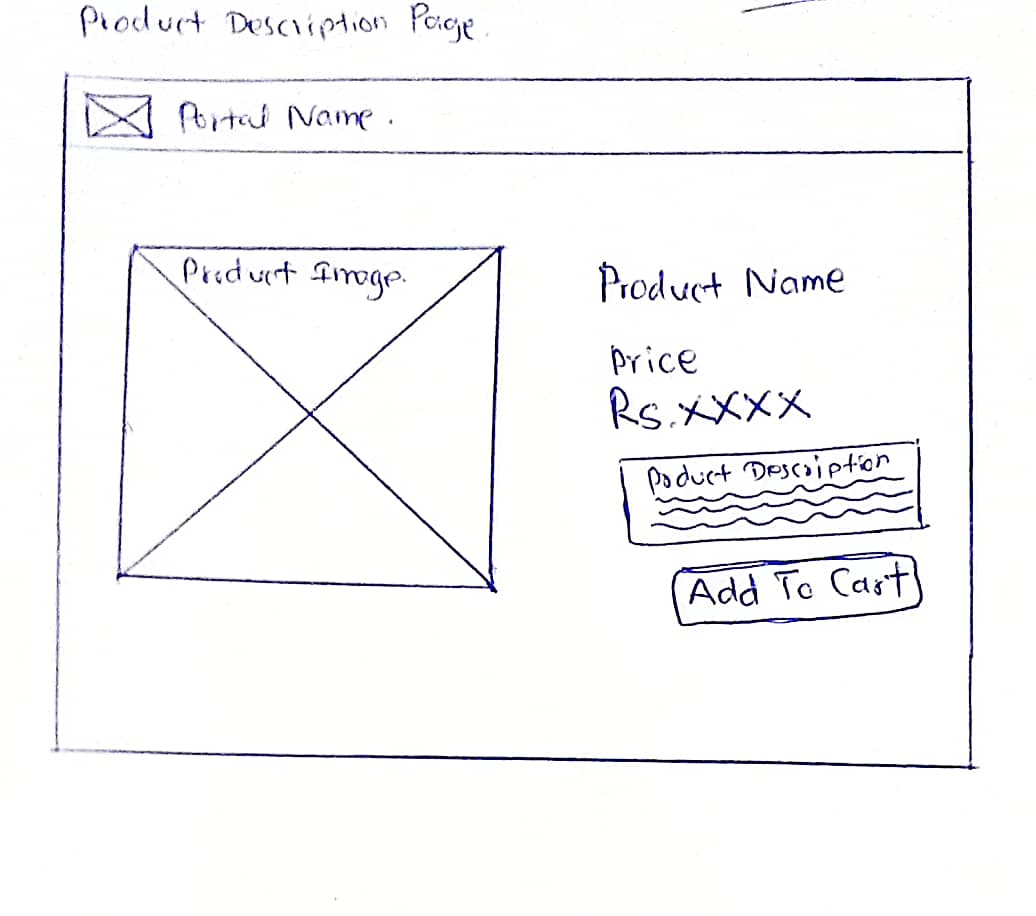 Product Description Page.
Portal Name.
Product Image.
Product Name
Price
Rs.XXXX
Poduct Description
Add To Cart